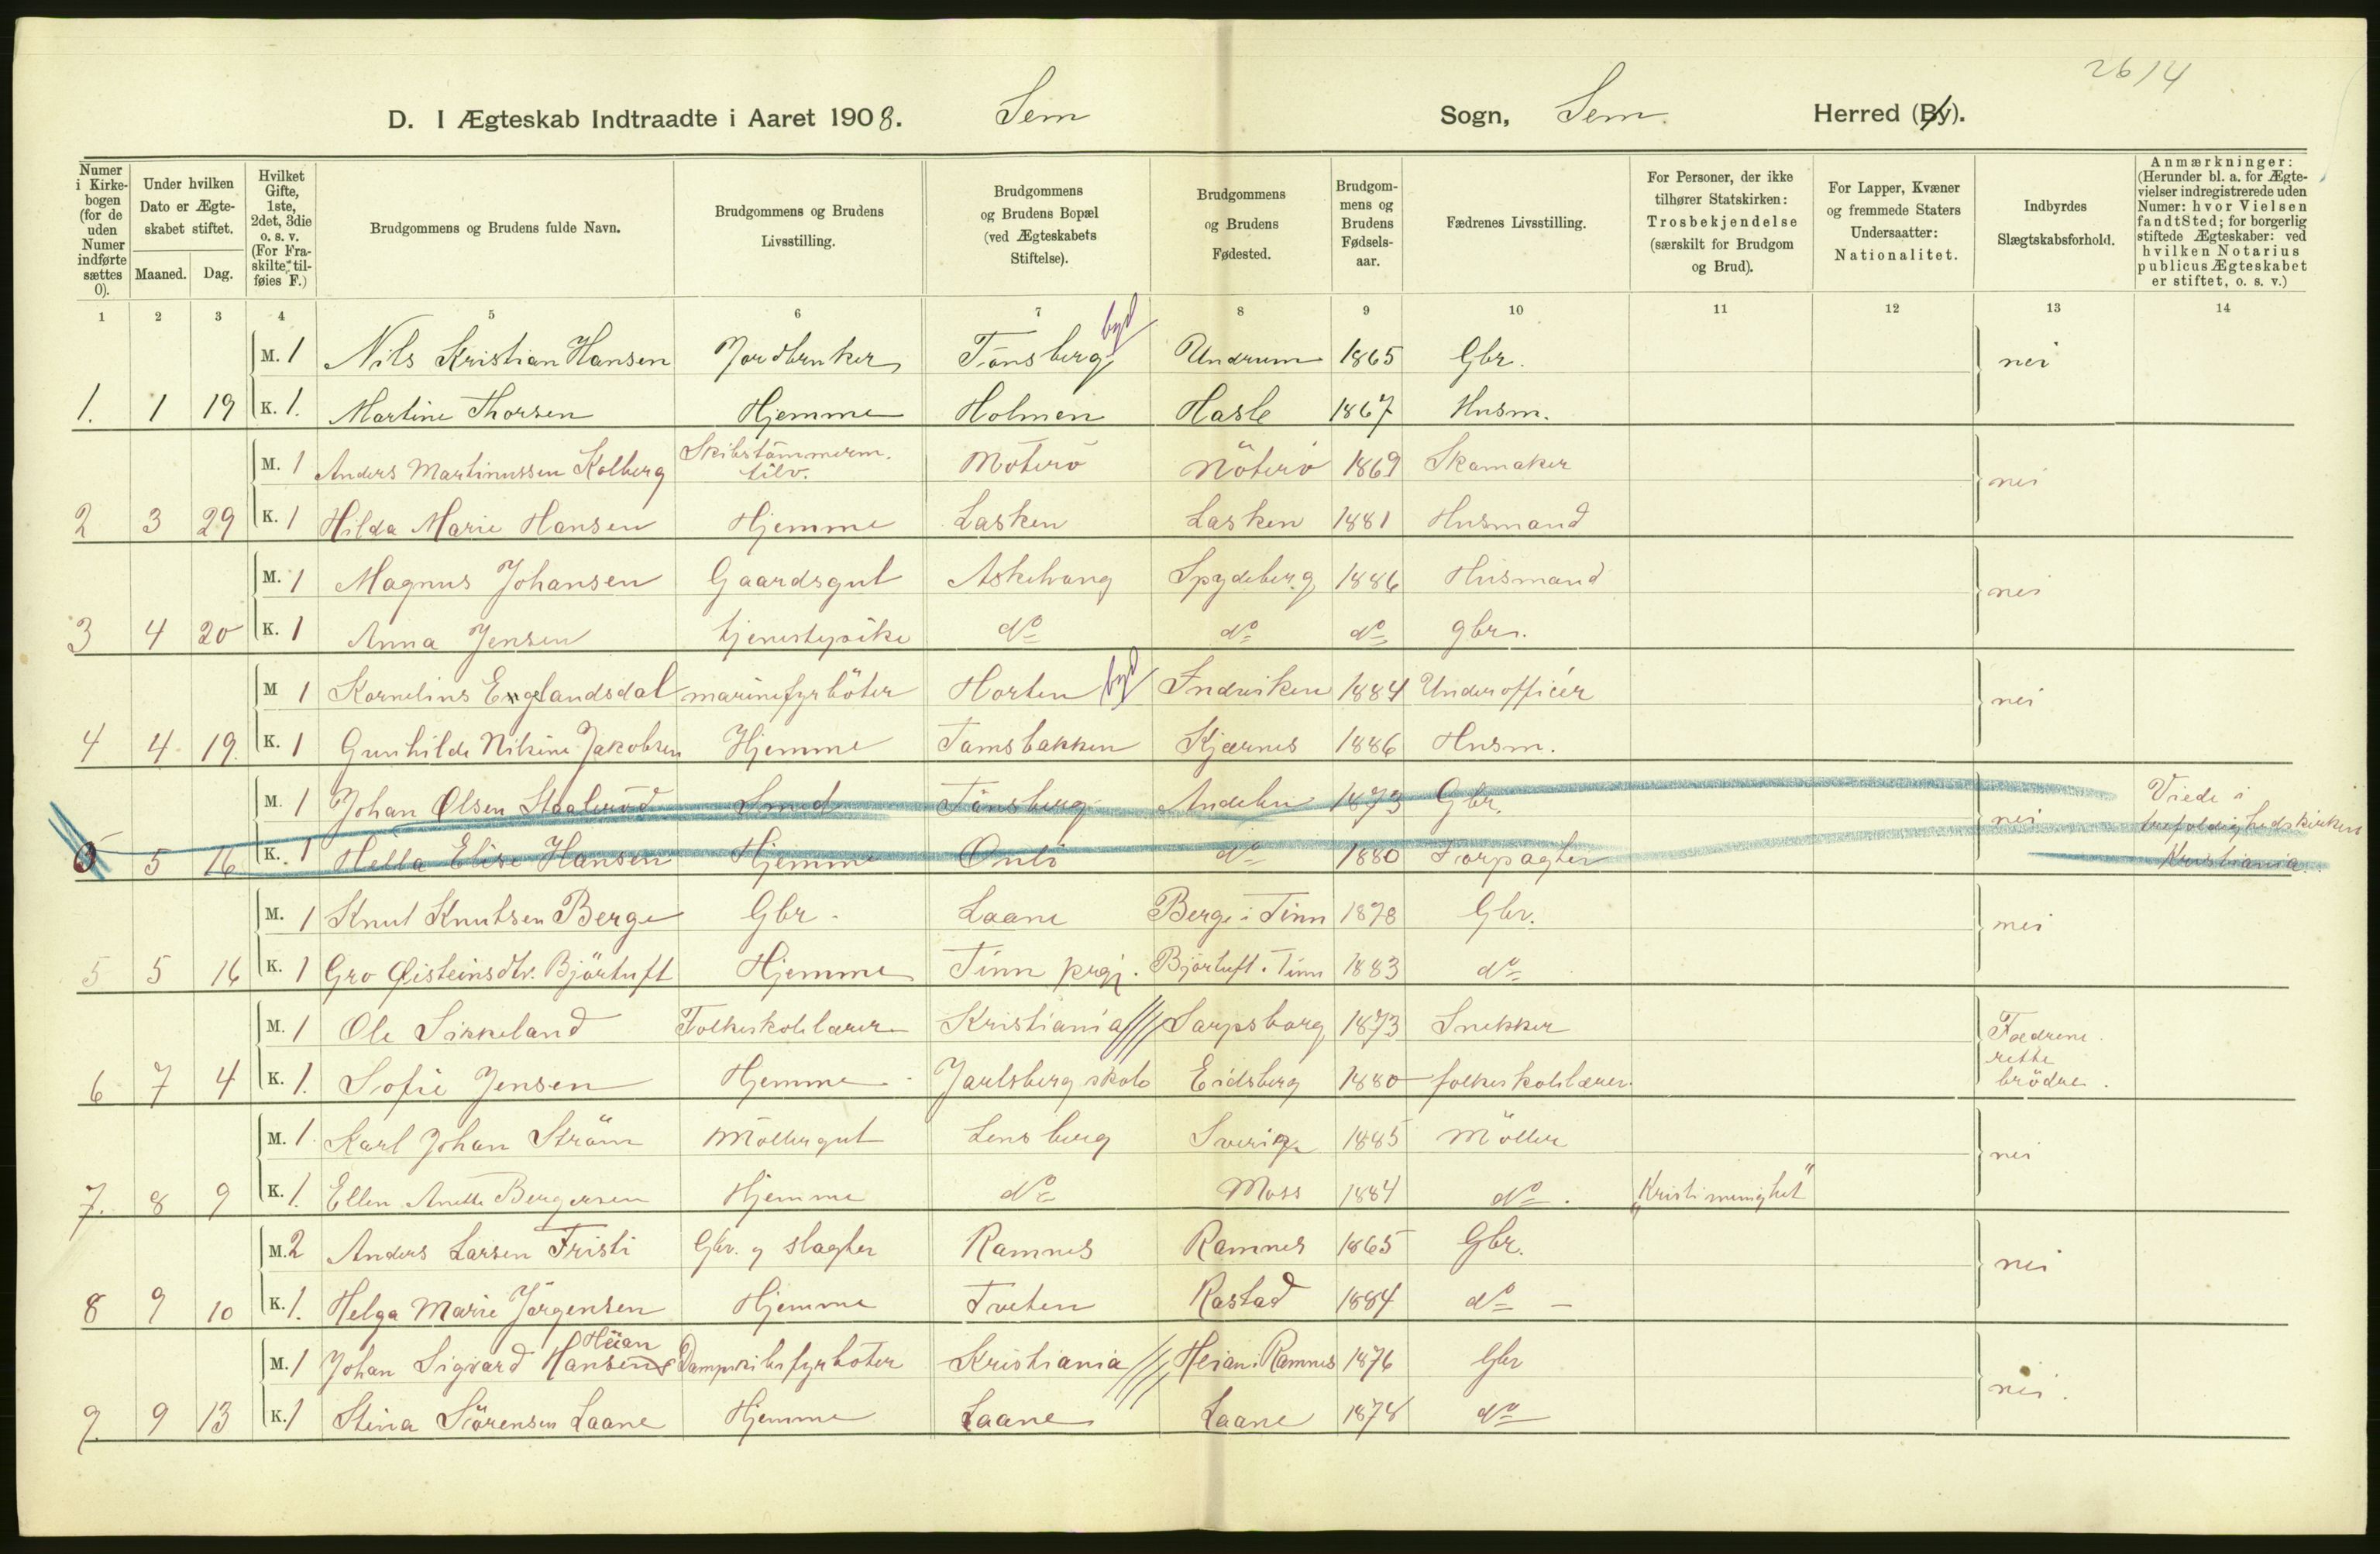 2614
D. I Ægteskab Indtraadte i Aaret 1908. Sem Sogn, Sem Herred (By).
Numer i Kirkebogen (for de uden Numer indførte sættes 0).
Under hvilken Dato er Ægteskabet stiftet.
Maaned. Dag.
Hvilket Gifte, 1ste, 2det, 3die o. s. v. (For Fraskilte tilføies F.)
Brudgommens og Brudens fulde Navn.
Brudgommens og Brudens Livsstilling.
Brudgommens og Brudens Bopæl (ved Ægteskabets Stiftelse).
Brudgommens og Brudens Fødested.
Brudgommens og Brudens Fødselsaar.
Fædrenes Livsstilling.
For Personer, der ikke tilhører Statskirken: Trosbekjendelse (særskilt for Brudgom og Brud).
For Lapper, Kvæner og fremmede Staters Undersaatter: Nationalitet.
Indbyrdes Slægtskabsforhold.
Anmærkninger: (Herunder bl. a. for Ægtevielser indregistrerede uden Numer: hvor Vielsen fandt Sted; for borgerlig stiftede Ægteskaber: ved hvilken Notarius publicus Ægteskabet er stiftet, o. s. v.)
1 2 3 4 5 6 7 8 9 10 11 12 13 14
M. 1 Nils Kristian Hansen Jordbruker Tönsberg byd Undrum 1865 Gbr. nei
1. 1 19 K. 1. Martine Thorsen Hjemme Holmen Hasle 1867 Husm.
M. 1 Anders Martinussen Kolberg Skibstömmerm. tilv. Nöterö Nöterö 1869 Skomaker nei
2 3 29 K. 1 Hilda Marie Hansen Hjemme Lasken Lasken 1881 Husmand
M. 1 Magnus Johansen Gaardsgut Askehaug Spydeberg 1886 Husmand nei
3 4 20 K. 1 Anna Jensen tjenestepike do do do gbr.
M 1 Kornelius Englandsdal marinefyrböter Horten byd Indviken 1884 Underofficér nei
4 4 19. K. 1 Gunhilde Nikine Jakobsen Hjemme Tamsbakken Kjærnes 1886 Husm.
M. 1 Johan Olsen Staalerød Smed Tönsberg Andebu 1873 Gbr. nei Viede i
trefoldighedskirken
0 5 16 K. 1 Hella Elise Hansen Hjemme do 1880 Forpagter Kristiania.
M. 1 Knut Knutsen Berge Gbr. Laane Berge i Tinn 1878 Gbr. nei
5 5 16 K. 1 Gro Øisteinsdtr. Björtuft Hjemme Tinn prgj. Björtuft. Tinn 1883 do
M. 1 Ole Sikkeland Folkeskolelærer Kristiania Sarpsborg 1873 Snekker Fædrene
rette
6 7 4 K. 1. Sofie Jensen Hjemme Jarlsberg skole Eidsberg 1880 folkeskolelærer. brödre.
M. 1. Karl Johan Ström Möllergut Lensberg Sverige 1885 Möller nei
7. 8 9 K. 1. Ellen Anette Bergersen Hjemme do Moss 1884 do. "Kristi menighet"
M. 2 Anders Larsen Fristi Gbr. og slagter Ramnes Ramnes 1865 Gbr. nei
8 9 10 K. 1. Helga Marie Jörgensen Hjemme Tveten Rastad 1884 do —
Heian
M. 1 Johan Sigvard Hansen Dampskibsfyrböter Kristiania Heian i Ramnes 1876 Gbr nei.
9. 9 13 K. 1 Stina Sörensen Laane Hjemme Laane Laane 1878 do